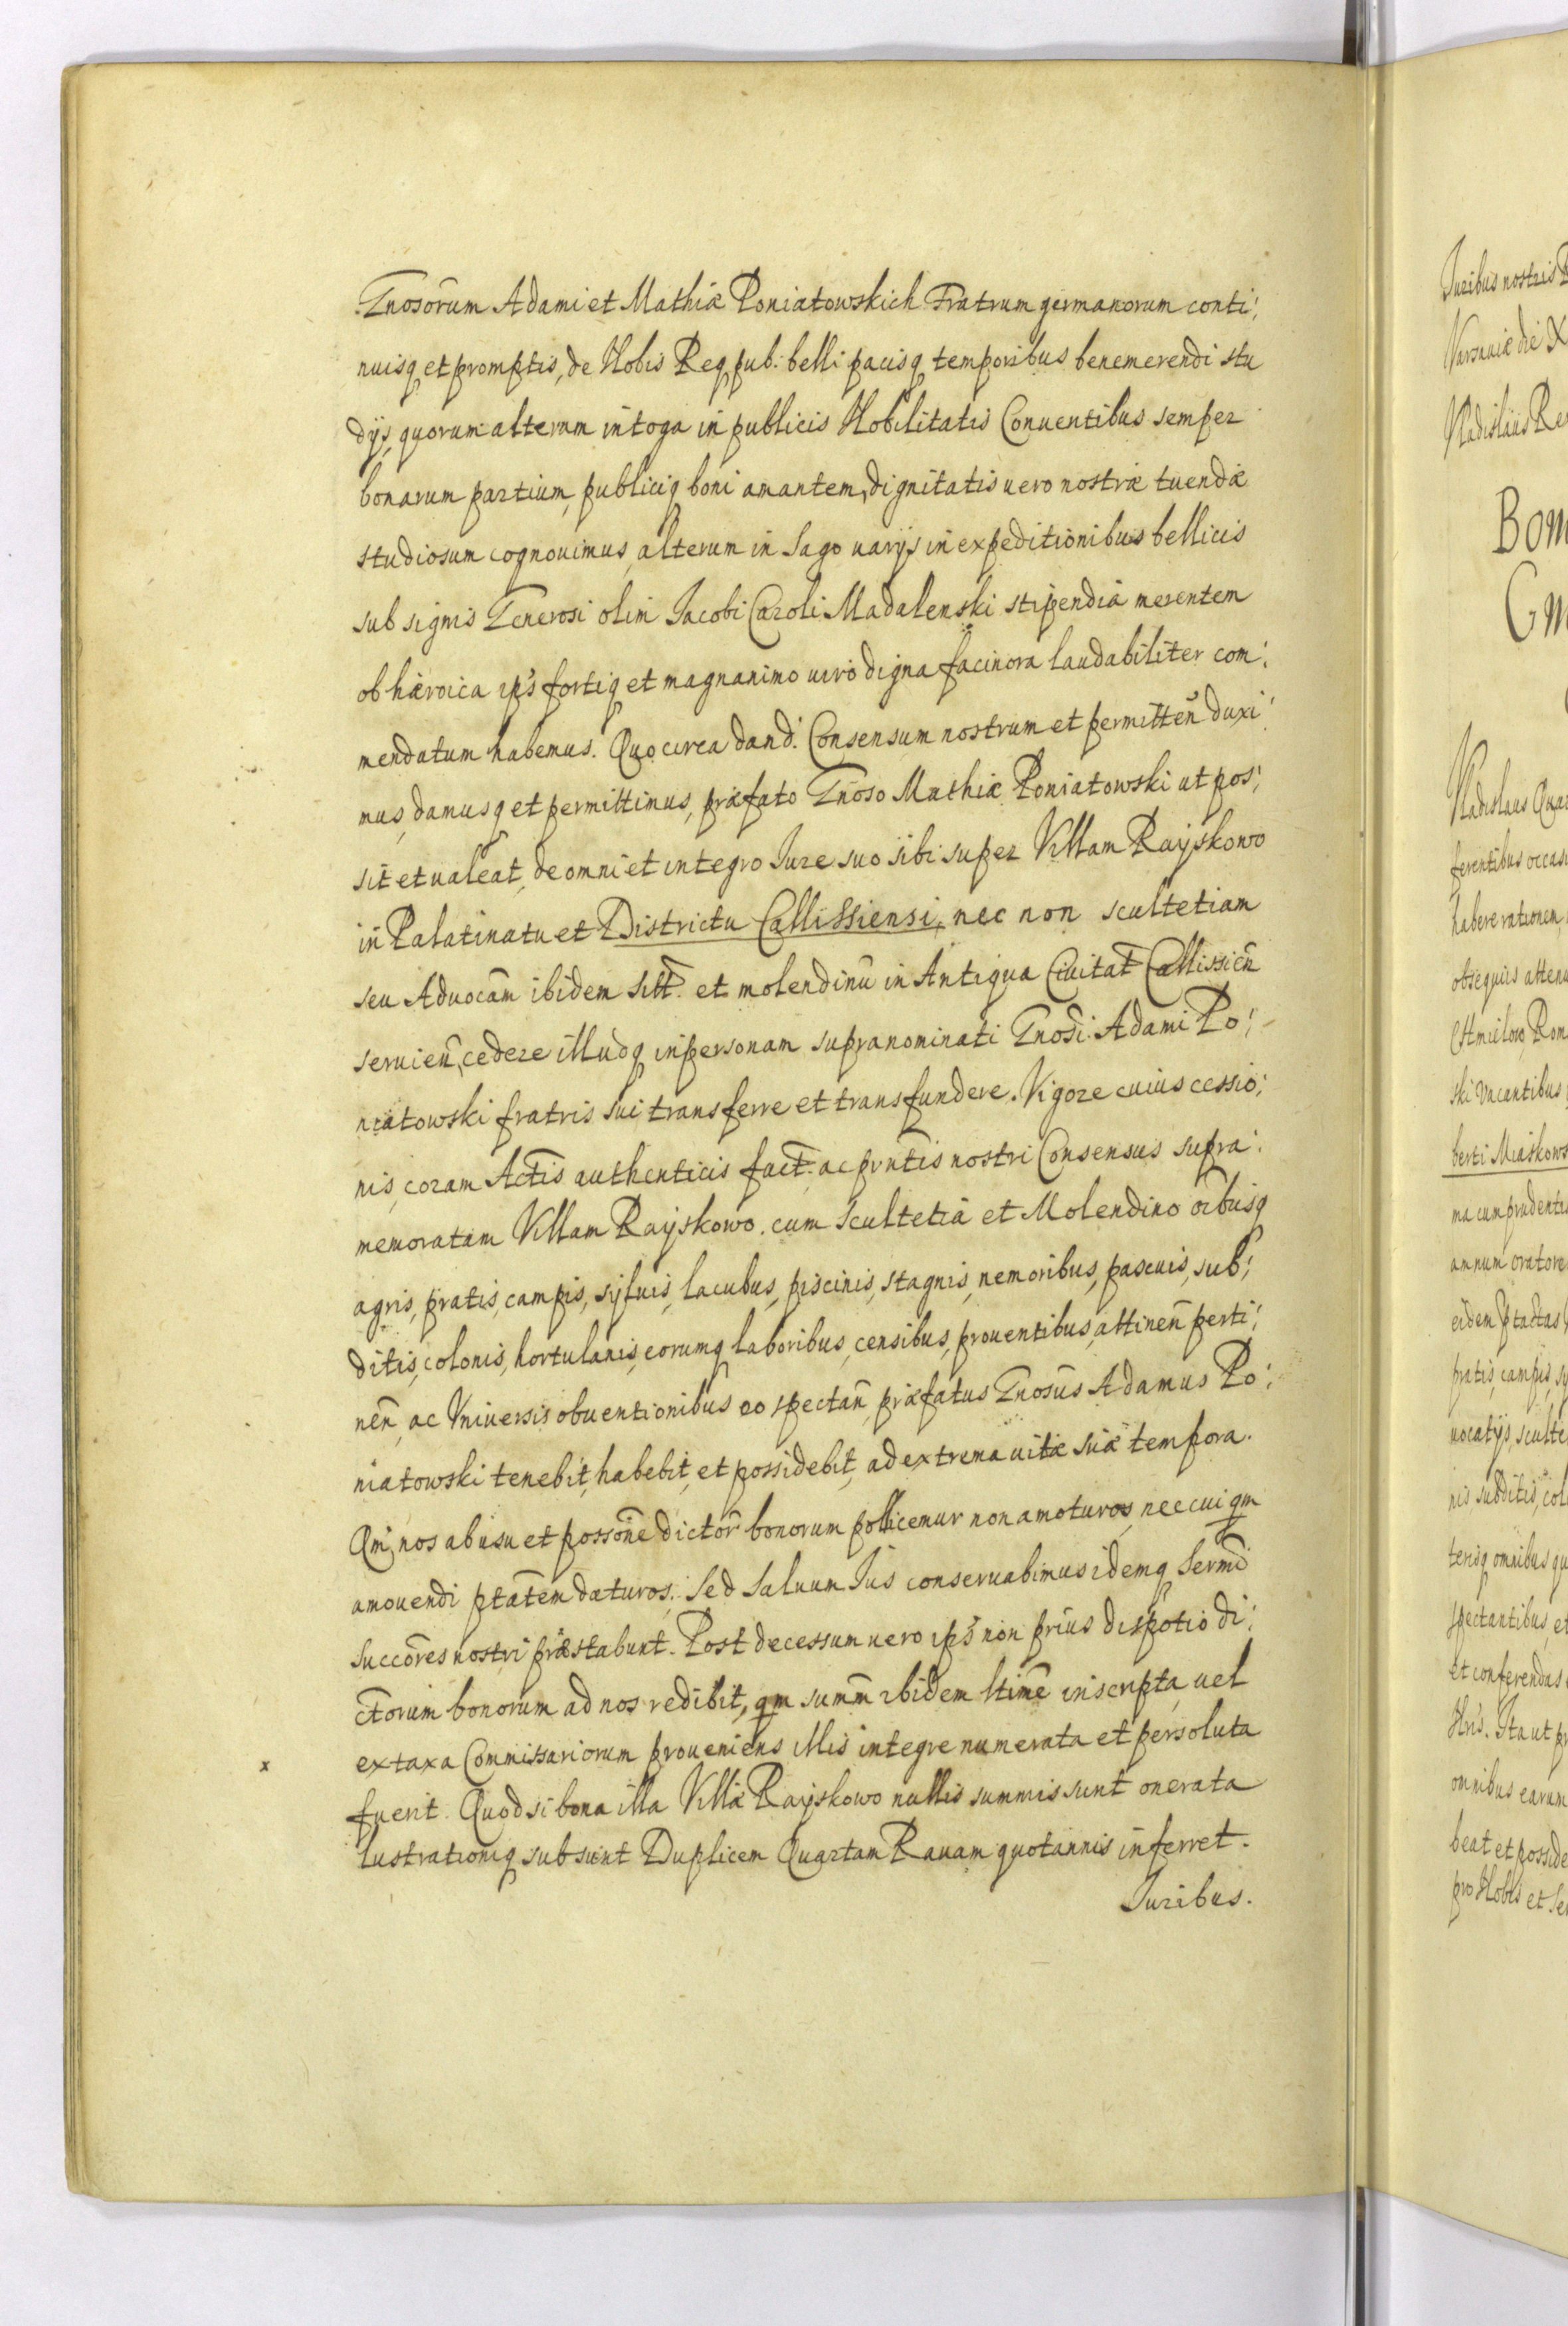 Gnosorum Adami et Mathiæ Poniatowskich Fratrum germanorum conti:
nuisq et promptis, de Nobis Reqpub. belli pacisq temporibus benemerendi stu
dijs, quorum alterum in toga in publicis Nobilitatis Conuentibus semper
bonarum partium, publiciq boni amantem, dignitatis uero nostræ tuendæ
studiosum cognouimus, alterum in Sago uarijs in expeditionibus bellicis
sub signis Generosi olim Jacobi Caroli Madalenski stipendia merentem
ob hæroica ips fortiq et magnanimo uiro digna facinora laudabiliter com:
mendatum habemus. Quocirca dand. Consensum nostrum et permitten̄ duxi:
mus, damusq et permittimus, præfato Gnoso Mathiæ Poniatowski ut pos:
sit et ualeat, de omni et integro Jure suo sibi super Villam Rayskowo
in Palatinatu et Districtu Callissiensi, nec non scultetiam
seu Aduocām ibidem sitt. et molendinū in Antiqua Ciuitat̄ Callissien̄
seruien̄, cedere illudq in personam supranominati Gnosi Adami Po:
niatowski fratris sui transferre et transfundere. Vigore cuius cessio:
nis, coram Actis authenticis fact. ac pntis nostri Consensus supra:
memoratam Villam Rayskowo. cum scultetia et Molendino oībusq
agris, pratis, campis, syluis, lacubus, piscinis, stagnis, nemoribus, pascuis, sub:
ditis, colonis, hortulanis, eorumq laboribus, censibus, prouentibus, attinen̄ perti:
nen̄, ac Vniuersis obuentionibus eo spectan̄ præfatus Gnosus Adamus Po:
niatowski tenebit, habebit, et possidebit, ad extrema uitæ suæ tempora.
Qm̄ nos ab usu et possone dictor̄ bonorum pollicemur non amoturos, nec cui qm
amouendi ptātem daturos: Sed Saluum Jus conseruabimus idemq Sermī
Succōres nostri præstabunt. Post decessum uero ips non prius dispōtio di:
ctorum bonorum ad nos redibit, qm summ̄ ibidem ltime inscripta, uel
ex taxa Commissariorum proueniens illis integre numerata et persoluta
fuerit. Quod si bona illa Villæ Rayskowo nullis summis sunt onerata
lustrationiq subsunt Duplicem Quartam Rauam quotannis inferret.
Juribus.
x
Juribus nostris
Varsauiæ die X
Vladislaus Re
Bom
Gm
Vladislaus Quar
ferentibus occasi
habere rationem
obsequiis attenu
ski Vacantibus
berti Miaskows
ma cum prudentia
annum oratore
eidem ptactas
pratis, campis, sy
uocatijs, sculte
nis subditis, col
terisq omnibus qu
spectantibus, et
et conferendas
Nris. Ita ut pr
omnibus earum
beat et posside
pro Nobis et Se